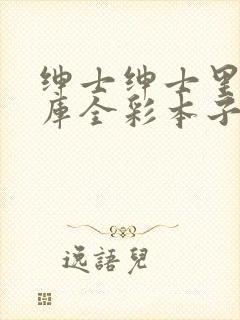 绅士绅士里
库全彩本子
逸語兒